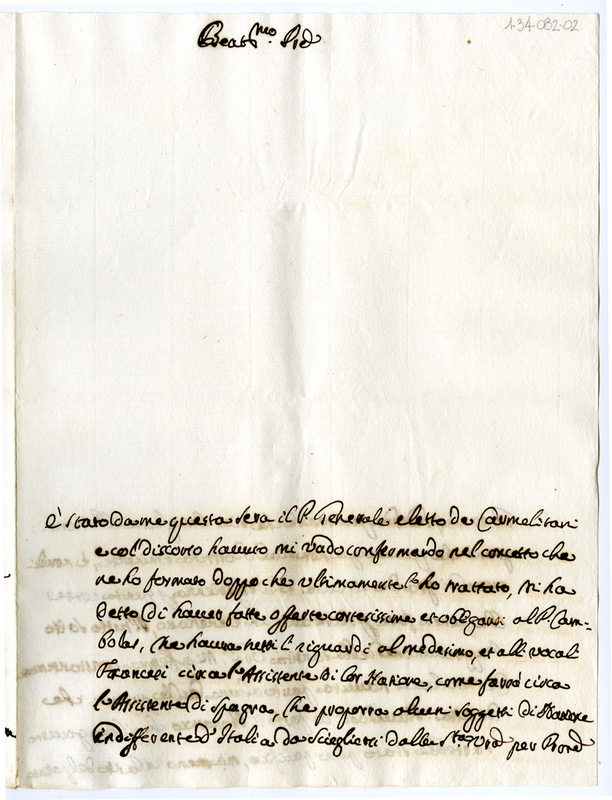 1-34-082-02
Beat.mo Prē
È stato da me questa sera il P. Generale eletto de Carmelitani
e col discorso havuto mi vado confermando nel concetto che
ne ho formato doppo che ultimamente l'ho trattato, Mi ha
detto di haver fatte offerte cortesissime et obliganti al P. Cam-
bolas, che havrà tutti li riguardi al medesimo, et alli vocali
Francesi circa l'Assistente di lor Natione, come farà circa
l'Assistente di Spagna, che proporrà alcuni soggetti di Natione
indifferente d'Italia da scieglierti dalla S.tà Vrā per